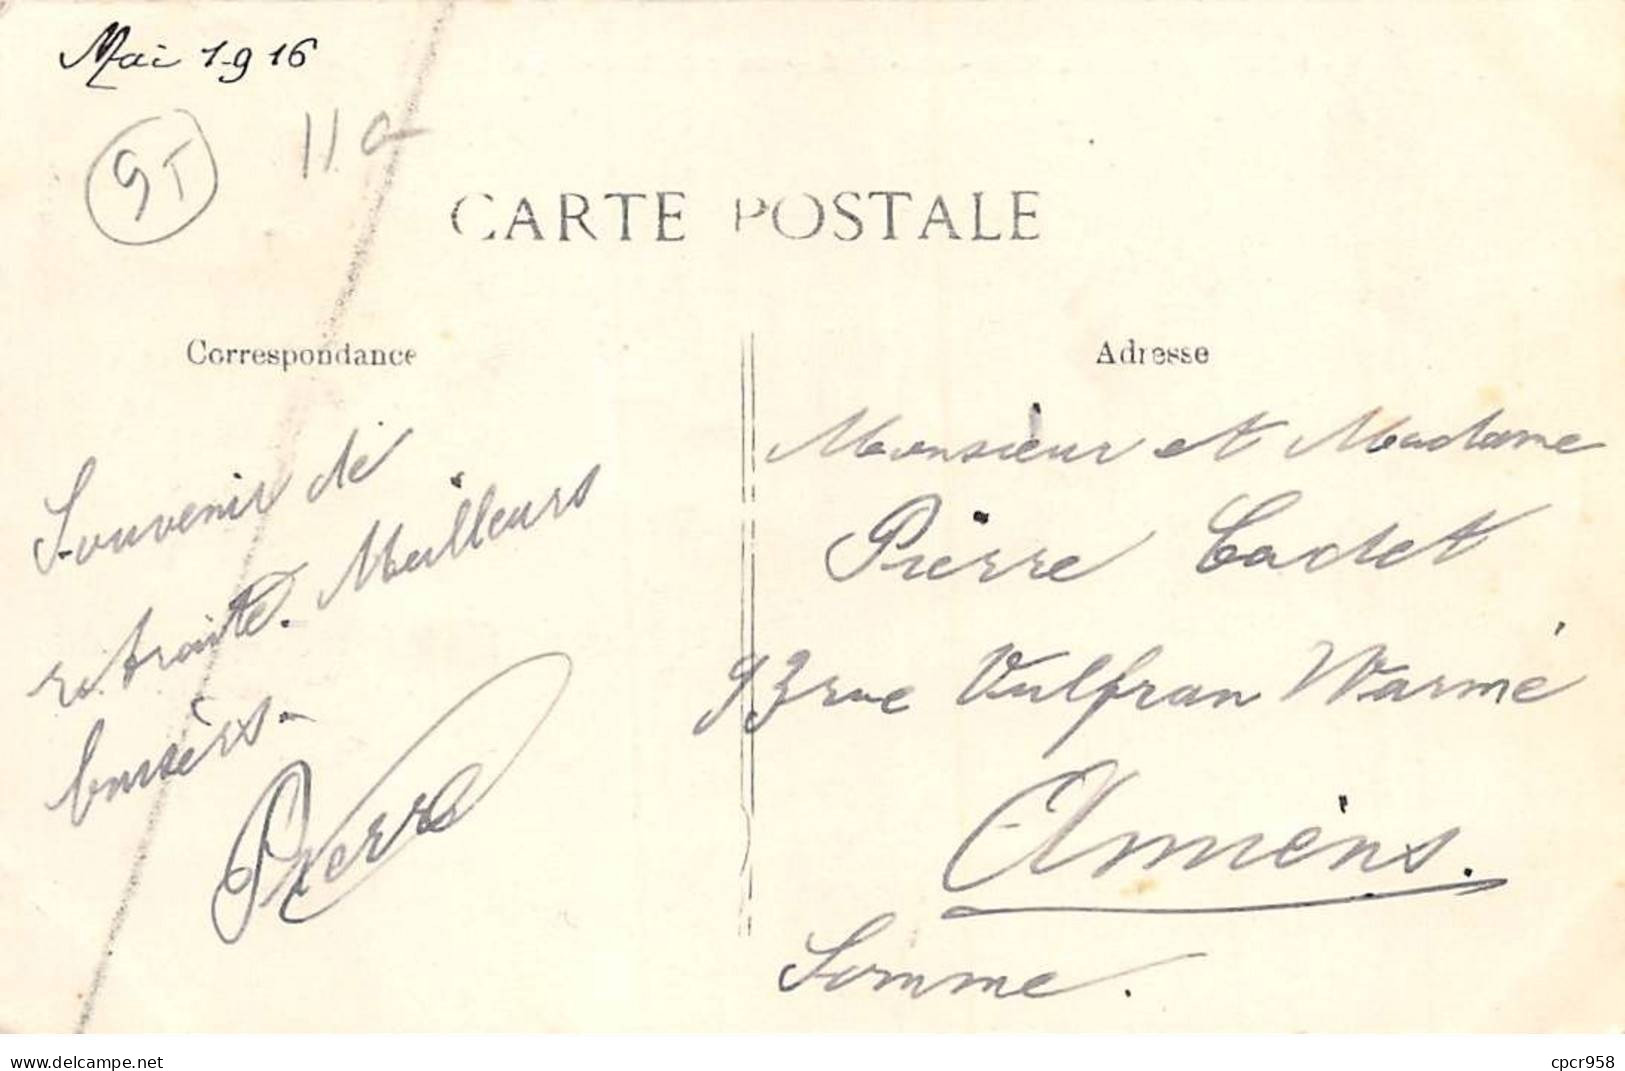 Mai 1916
110
CARTE POSTALE
Correspondance
Adresse
Souvenir de
retraite. Meilleurs
baisers.
Pierre
Monsieur et Madame
Pierre Cadet
93 rue Vulfran Warmé
Amiens.
Somme.
www.delcampe.net
cpcr958